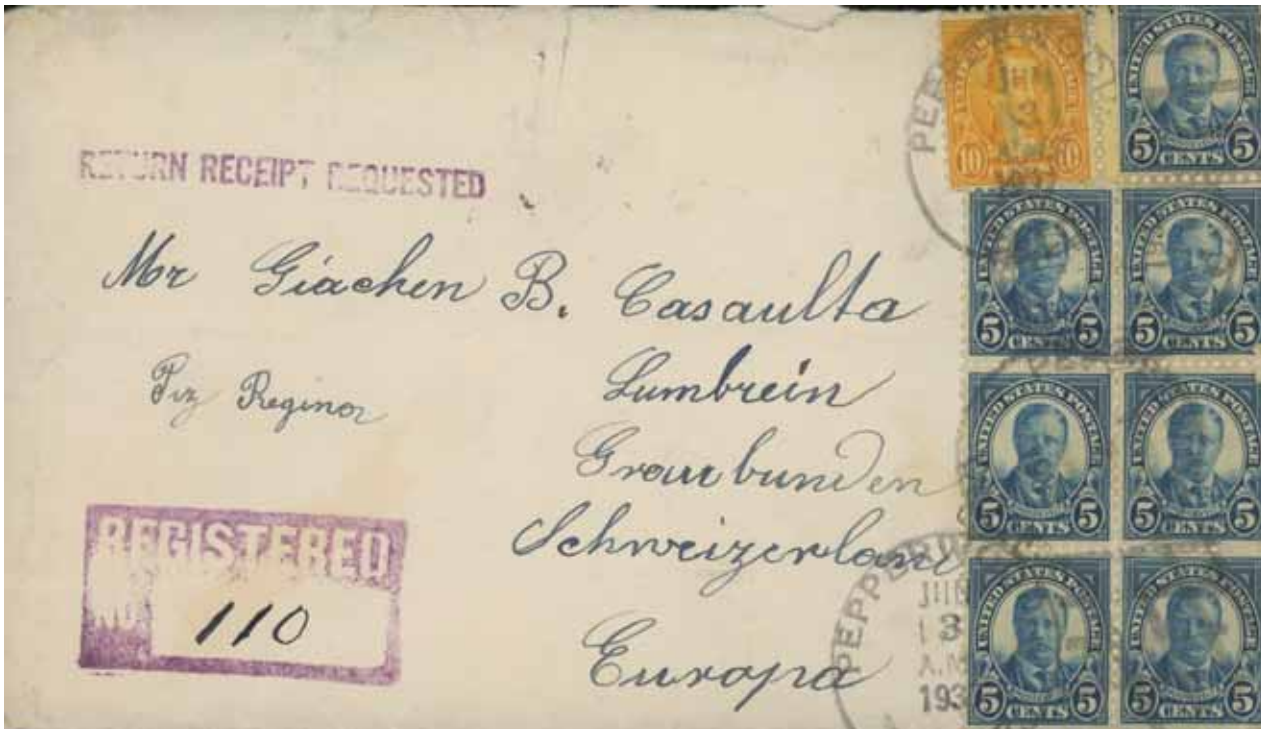 RETURN RECEIPT REQUESTED
Mr Giachen B. Casaulta
Piz Regina
Lumbrein
Graubunden
Schweizerland
Europa
REGISTERED
NO.
110
UNITED STATES POSTAGE
10 10
UNITED STATES POSTAGE
5 CENTS 5
UNITED STATES POSTAGE
5 CENTS 5
UNITED STATES POSTAGE
5 CENTS 5
UNITED STATES POSTAGE
5 CENTS 5
UNITED STATES POSTAGE
5 CENTS 5
UNITED STATES POSTAGE
5 CENTS 5
UNITED STATES POSTAGE
5 CENTS 5
3
A.M
193